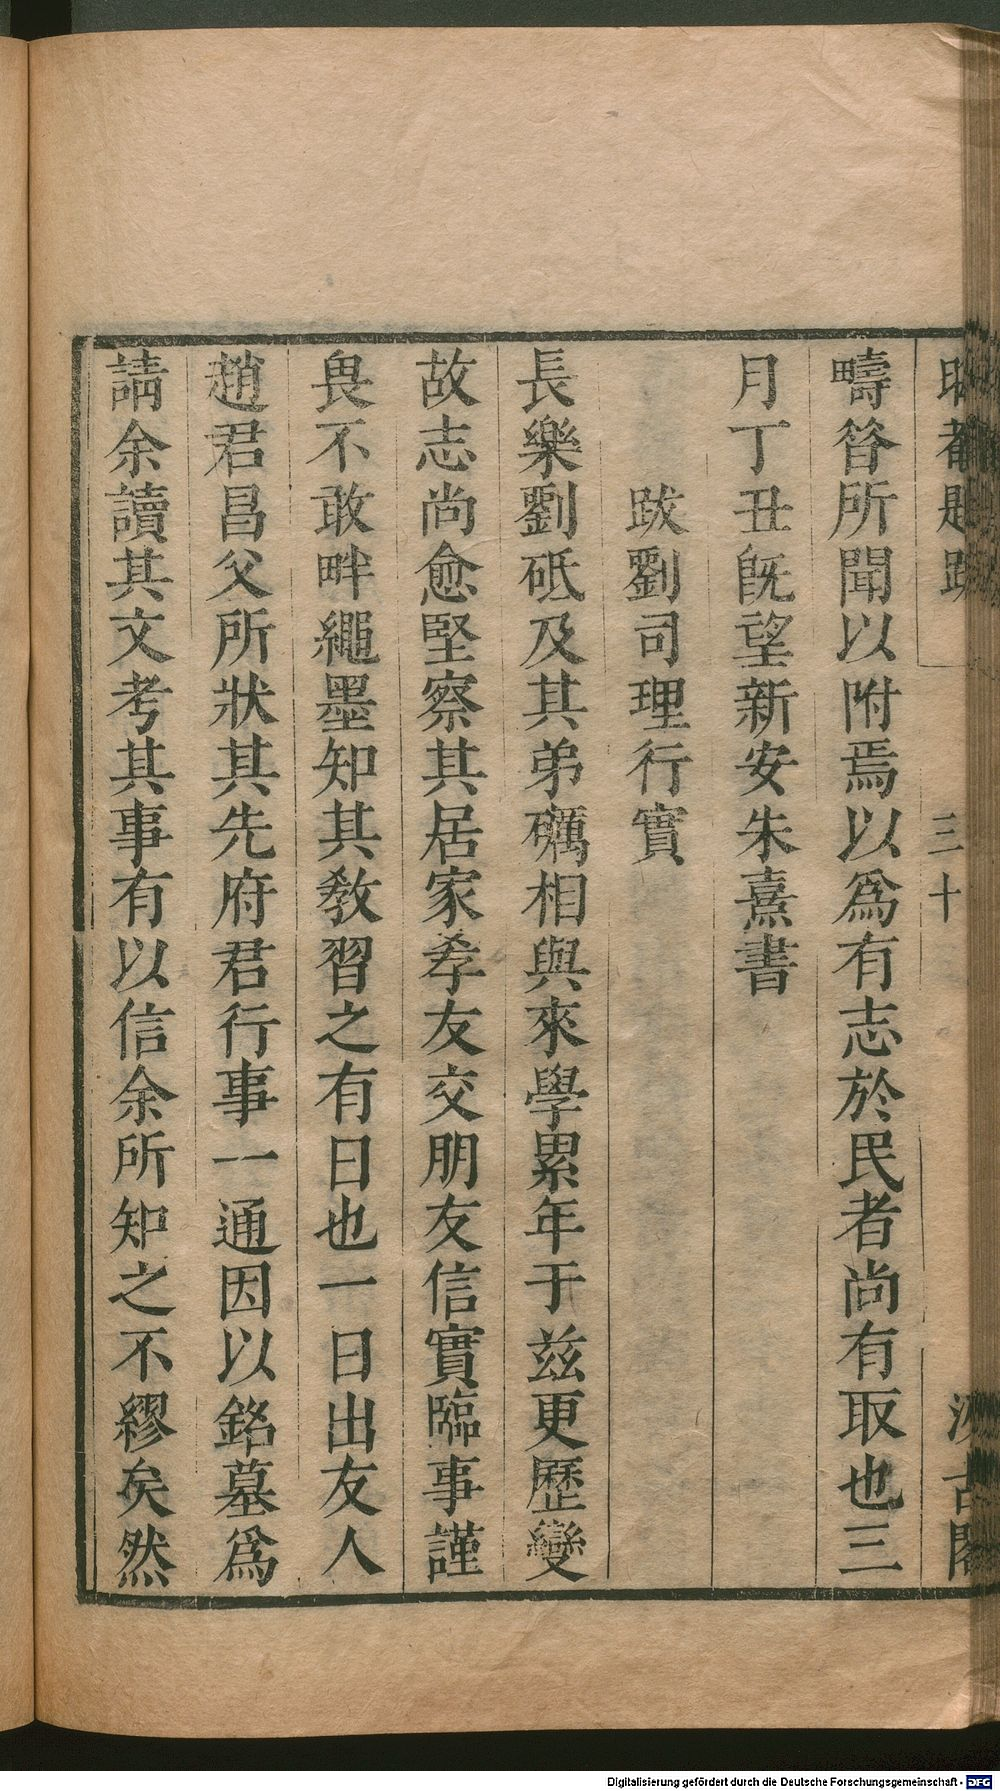 疇昝所聞以附焉以爲有志於民者尚有取也三
月丁丑旣望新安朱熹書
跋劉司理行實
長樂劉砥及其弟礪相與來學累年于兹更歷變
故志尚愈堅察其居家孝友交朋友信實臨事謹
畏不敢畔繩墨知其教習之有日也一日出友人
趙君昌父所狀其先府君行事一通因以銘墓爲
請余讀其文考其事有以信余所知之不繆矣然
三十
汲古閣
Digitalisierung gefördert durch die Deutsche Forschungsgemeinschaft - DFG